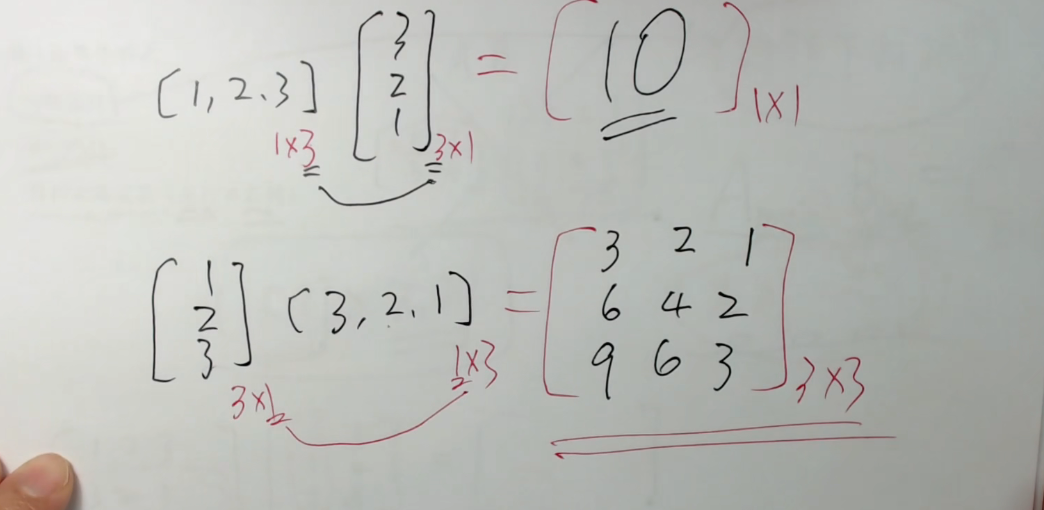 [1, 2. 3] [3 2 1] = [10]1×1
1×3 3×1
[1 2 3] [3, 2. 1] = [3 2 1
6 4 2
9 6 3]3×3
3×1 1×3